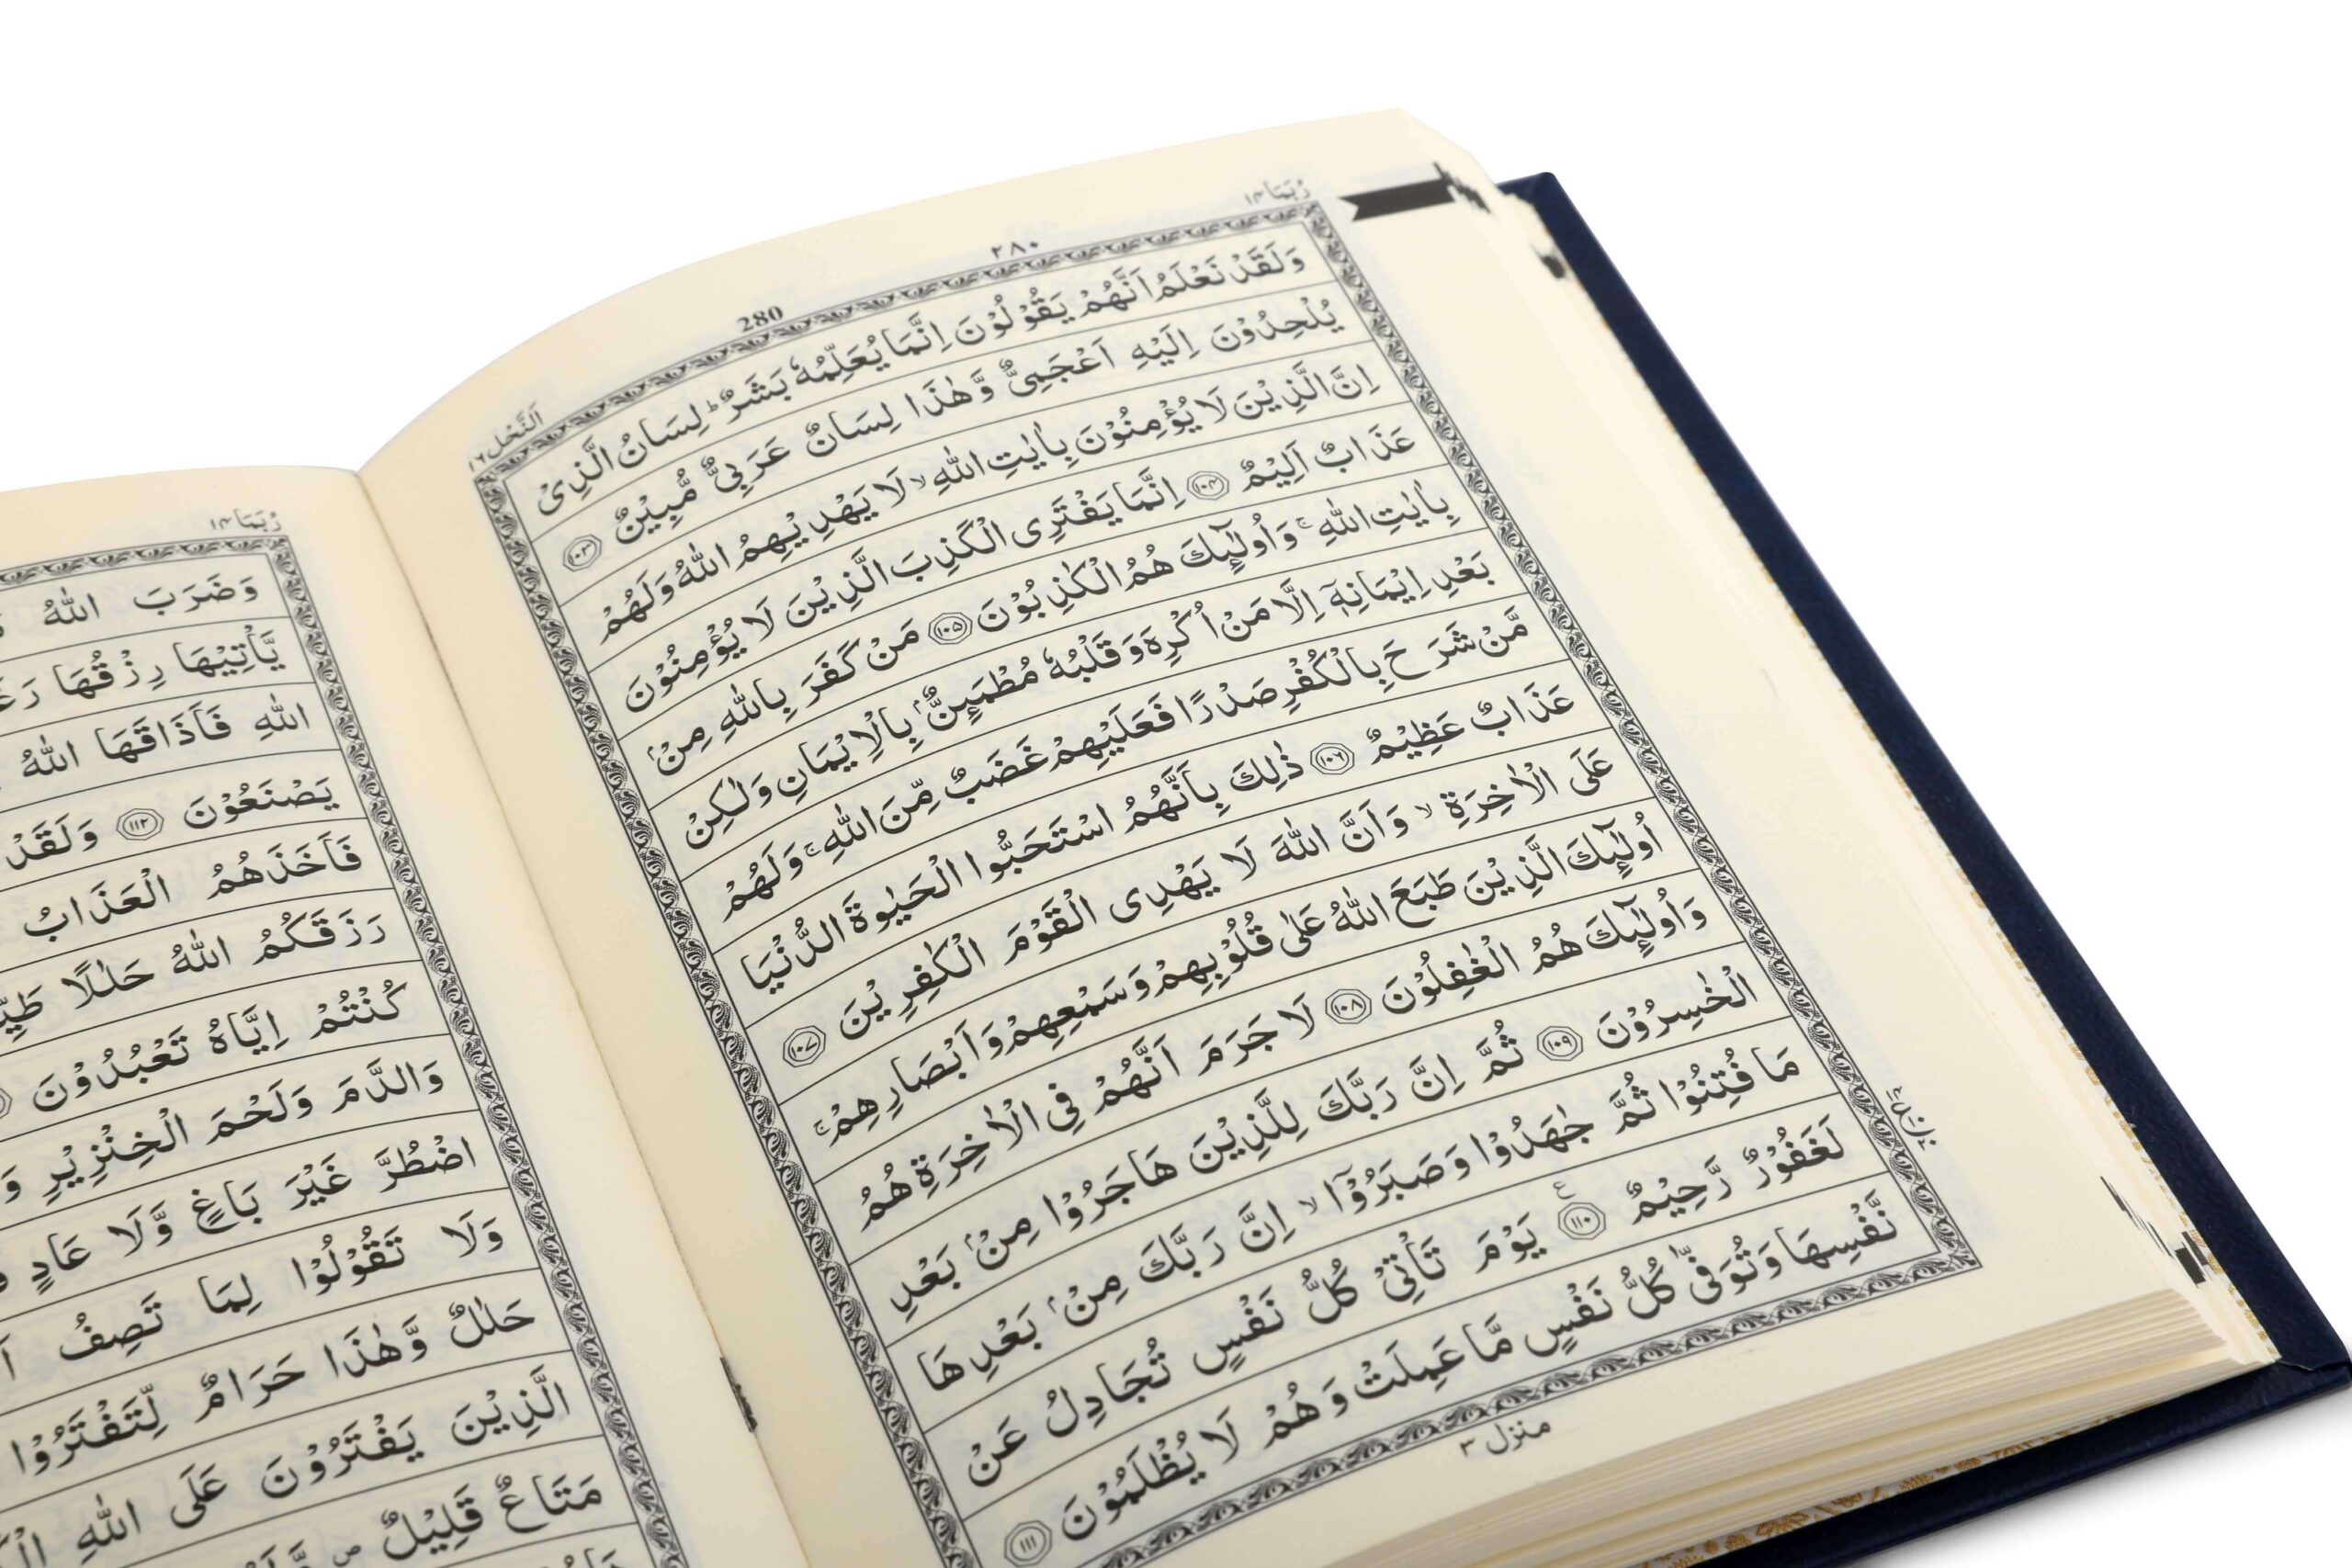 رُبَمَا ١٤
٢٨٠
280
اَلنَّحْل ١٦
وَلَقَدْ نَعْلَمُ اَنَّهُمْ يَقُوْلُوْنَ اِنَّمَا يُعَلِّمُهٗ بَشَرٌ ؕ لِسَانُ الَّذِىْ
يُلْحِدُوْنَ اِلَيْهِ اَعْجَمِىٌّ وَّهٰذَا لِسَانٌ عَرَبِىٌّ مُّبِيْنٌ ﴿١٠٣﴾
اِنَّ الَّذِيْنَ لَا يُؤْمِنُوْنَ بِاٰيٰتِ اللّٰهِ ۙ لَا يَهْدِيْهِمُ اللّٰهُ وَلَهُمْ
عَذَابٌ اَلِيْمٌ ﴿١٠٤﴾ اِنَّمَا يَفْتَرِى الْكَذِبَ الَّذِيْنَ لَا يُؤْمِنُوْنَ
بِاٰيٰتِ اللّٰهِ ۚ وَاُولٰٓئِكَ هُمُ الْكٰذِبُوْنَ ﴿١٠٥﴾ مَنْ كَفَرَ بِاللّٰهِ مِنْۢ
بَعْدِ اِيْمَانِهٖۤ اِلَّا مَنْ اُكْرِهَ وَقَلْبُهٗ مُطْمَئِنٌّۢ بِالْاِيْمَانِ وَلٰكِنْ
مَّنْ شَرَحَ بِالْكُفْرِ صَدْرًا فَعَلَيْهِمْ غَضَبٌ مِّنَ اللّٰهِ ۚ وَلَهُمْ
عَذَابٌ عَظِيْمٌ ﴿١٠٦﴾ ذٰلِكَ بِاَنَّهُمُ اسْتَحَبُّوا الْحَيٰوةَ الدُّنْيَا
عَلَى الْاٰخِرَةِ ۙ وَاَنَّ اللّٰهَ لَا يَهْدِى الْقَوْمَ الْكٰفِرِيْنَ ﴿١٠٧﴾
اُولٰٓئِكَ الَّذِيْنَ طَبَعَ اللّٰهُ عَلٰى قُلُوْبِهِمْ وَسَمْعِهِمْ وَاَبْصَارِهِمْ ۚ
وَاُولٰٓئِكَ هُمُ الْغٰفِلُوْنَ ﴿١٠٨﴾ لَا جَرَمَ اَنَّهُمْ فِى الْاٰخِرَةِ هُمُ
الْخٰسِرُوْنَ ﴿١٠٩﴾ ثُمَّ اِنَّ رَبَّكَ لِلَّذِيْنَ هَاجَرُوْا مِنْۢ بَعْدِ
مَا فُتِنُوْا ثُمَّ جٰهَدُوْا وَصَبَرُوْۤا ۙ اِنَّ رَبَّكَ مِنْۢ بَعْدِهَا
لَغَفُوْرٌ رَّحِيْمٌ ﴿١١٠﴾ يَوْمَ تَاْتِىْ كُلُّ نَفْسٍ تُجَادِلُ عَنْ
نَّفْسِهَا وَتُوَفّٰى كُلُّ نَفْسٍ مَّا عَمِلَتْ وَهُمْ لَا يُظْلَمُوْنَ ﴿١١١﴾
منزل ٣
رُبَمَا ١٤
وَضَرَبَ اللّٰهُ
يَّاْتِيْهَا رِزْقُهَا
اللّٰهِ فَاَذَاقَهَا اللّٰهُ
يَصْنَعُوْنَ ﴿١١٢﴾ وَلَقَدْ
فَاَخَذَهُمُ الْعَذَابُ
رَزَقَكُمُ اللّٰهُ حَلٰلًا
كُنْتُمْ اِيَّاهُ تَعْبُدُوْنَ
وَالدَّمَ وَلَحْمَ الْخِنْزِيْرِ
اضْطُرَّ غَيْرَ بَاغٍ وَّلَا عَادٍ
وَلَا تَقُوْلُوْا لِمَا تَصِفُ
حَلٰلٌ وَّهٰذَا حَرَامٌ لِّتَفْتَرُوْا
الَّذِيْنَ يَفْتَرُوْنَ عَلَى اللّٰهِ
مَتَاعٌ قَلِيْلٌ ۖ